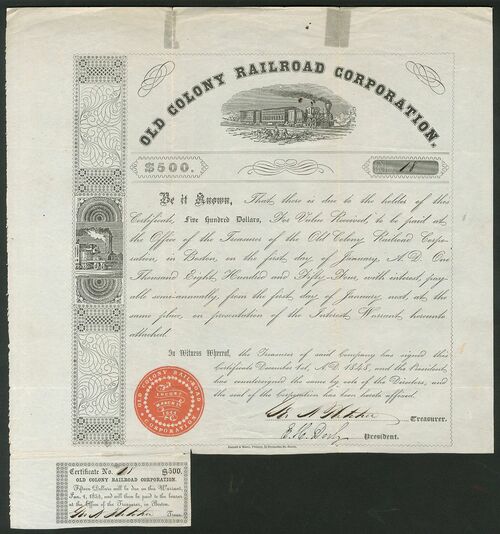 OLD COLONY RAILROAD CORPORATION.
$500.
Be it Known, That there is due to the holder of this
Certificate, Five Hundred Dollars, For Value Received, to be paid at
the Office of the Treasurer of the Old Colony Railroad Corpo-
ration, in Boston, on the first day of January, A.D. One
Thousand Eight Hundred and Fifty Four, with interest, pay-
able semi-annually, from the first day of January next, at the
same place, on presentation of the Interest Warrant, hereunto
attached.
In Witness Whereof, the Treasurer of said Company has signed this
Certificate December 1st, A.D. 1848, and the President
has countersigned the same by vote of the Directors, and
the seal of the Corporation has been hereto affixed.
OLD COLONY RAILROAD
CORPORATION
Treasurer.
President.
Certificate No. $500.
OLD COLONY RAILROAD CORPORATION.
Fifteen Dollars will be due on this Warrant,
Jan. 1, 1854, and will then be paid to the bearer
at the Office of the Treasurer, in Boston.
Treas.